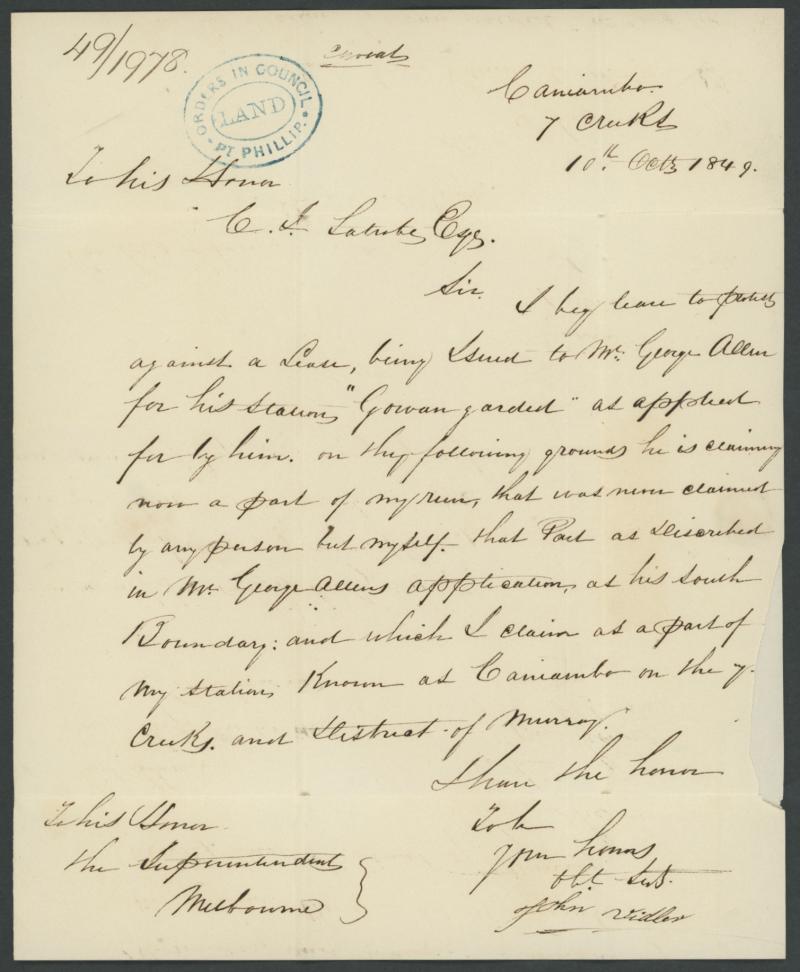 49/1978.
ORDERS IN COUNCIL
LAND
PT PHILLIP.
Caniambo.
7 Creeks
10th Octr 1849.
To his Honor
C. J. Latrobe Esqr.
Sir. I beg leave to protest
against a Lease, being Isued to Mr. George Allen
for his station "Gowangarded" as applied
for by him. on the following grounds he is claiming
now a part of my run, that was never claimed
by any person but myself. that Part as Discribed
in Mr. George Allens application, as his south
Boundary: and which I claim as a part of
my station, Known as Caniambo on the 7.
Creeks. and District of Murray.
I have the honor
To be
Your honors
Obt. Svt.
John Vidler
To his Honor
the Superintendent
Melbourne